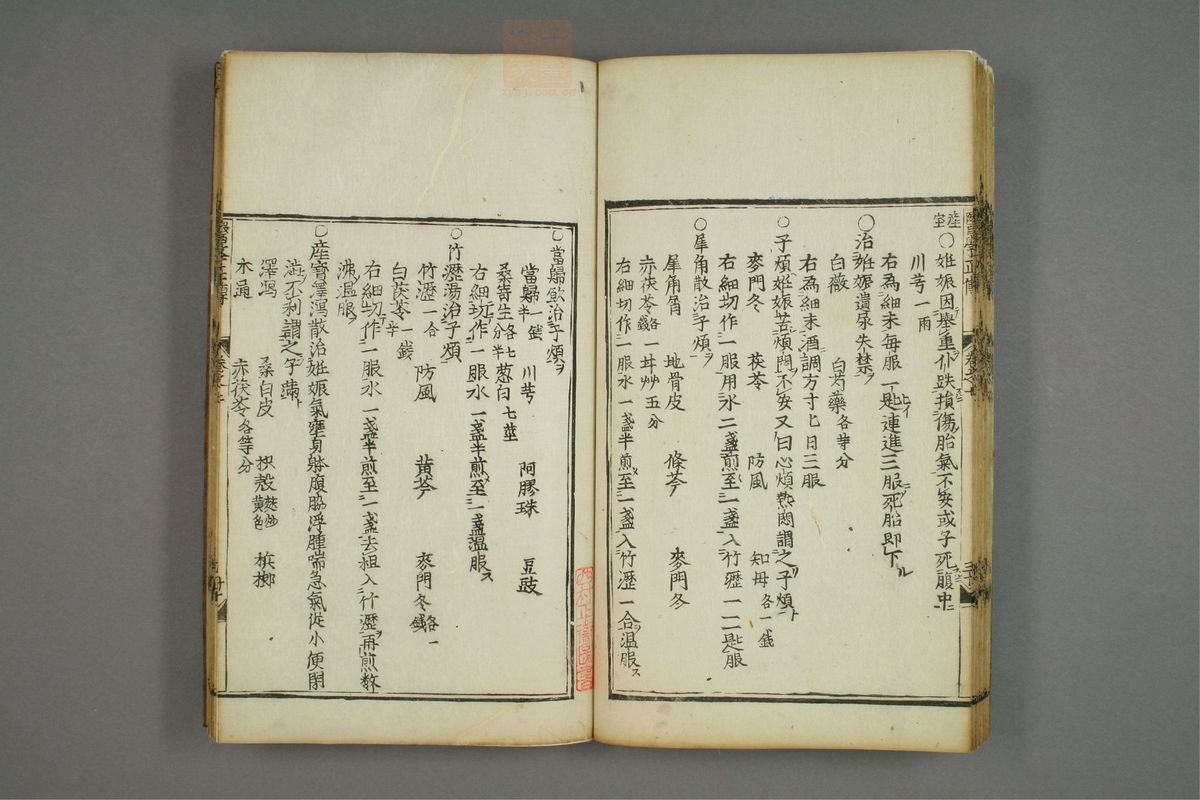 産室
○姙娠因擧重仆跌損傷胎氣不安或子死腹中
川芎一兩
右爲細末每服一匙連進三服死胎即下ル
○治姙娠遺尿失禁ヲ
白薇 白芍藥各等分
右爲細末酒調方寸匕日三服
○子煩姙娠苦煩悶不安又曰心煩熱悶謂之子煩ト
麥門冬 茯苓 防風 知母各一錢
右細切作一服用水二盞煎至一盞入竹瀝一二匙服
○犀角散治子煩ヲ
犀角屑 地骨皮 條芩 麥門冬
赤茯苓各一錢 甘艸五分
右細切作一服水一盞半煎至一盞入竹瀝一合温服ス
○當歸飲治子煩ヲ
當歸一錢半 川芎 阿膠珠 豆豉
桑寄生各七分半 葱白七莖
右細切作一服水一盞半煎至一盞温服ス
○竹瀝湯治子煩
竹瀝一合 防風 黃芩 麥門冬各一錢
白茯苓一錢半
右細切作一服水一盞半煎至一盞去柤入竹瀝再煎數
沸温服ヲ
○産寳澤瀉散治姙娠氣壅身體腹脇浮腫喘急氣從小便閉
澁不利謂之子滿ト
澤瀉 桑白皮 枳殻麩炒黄色 梹榔
木通 赤茯苓各等分